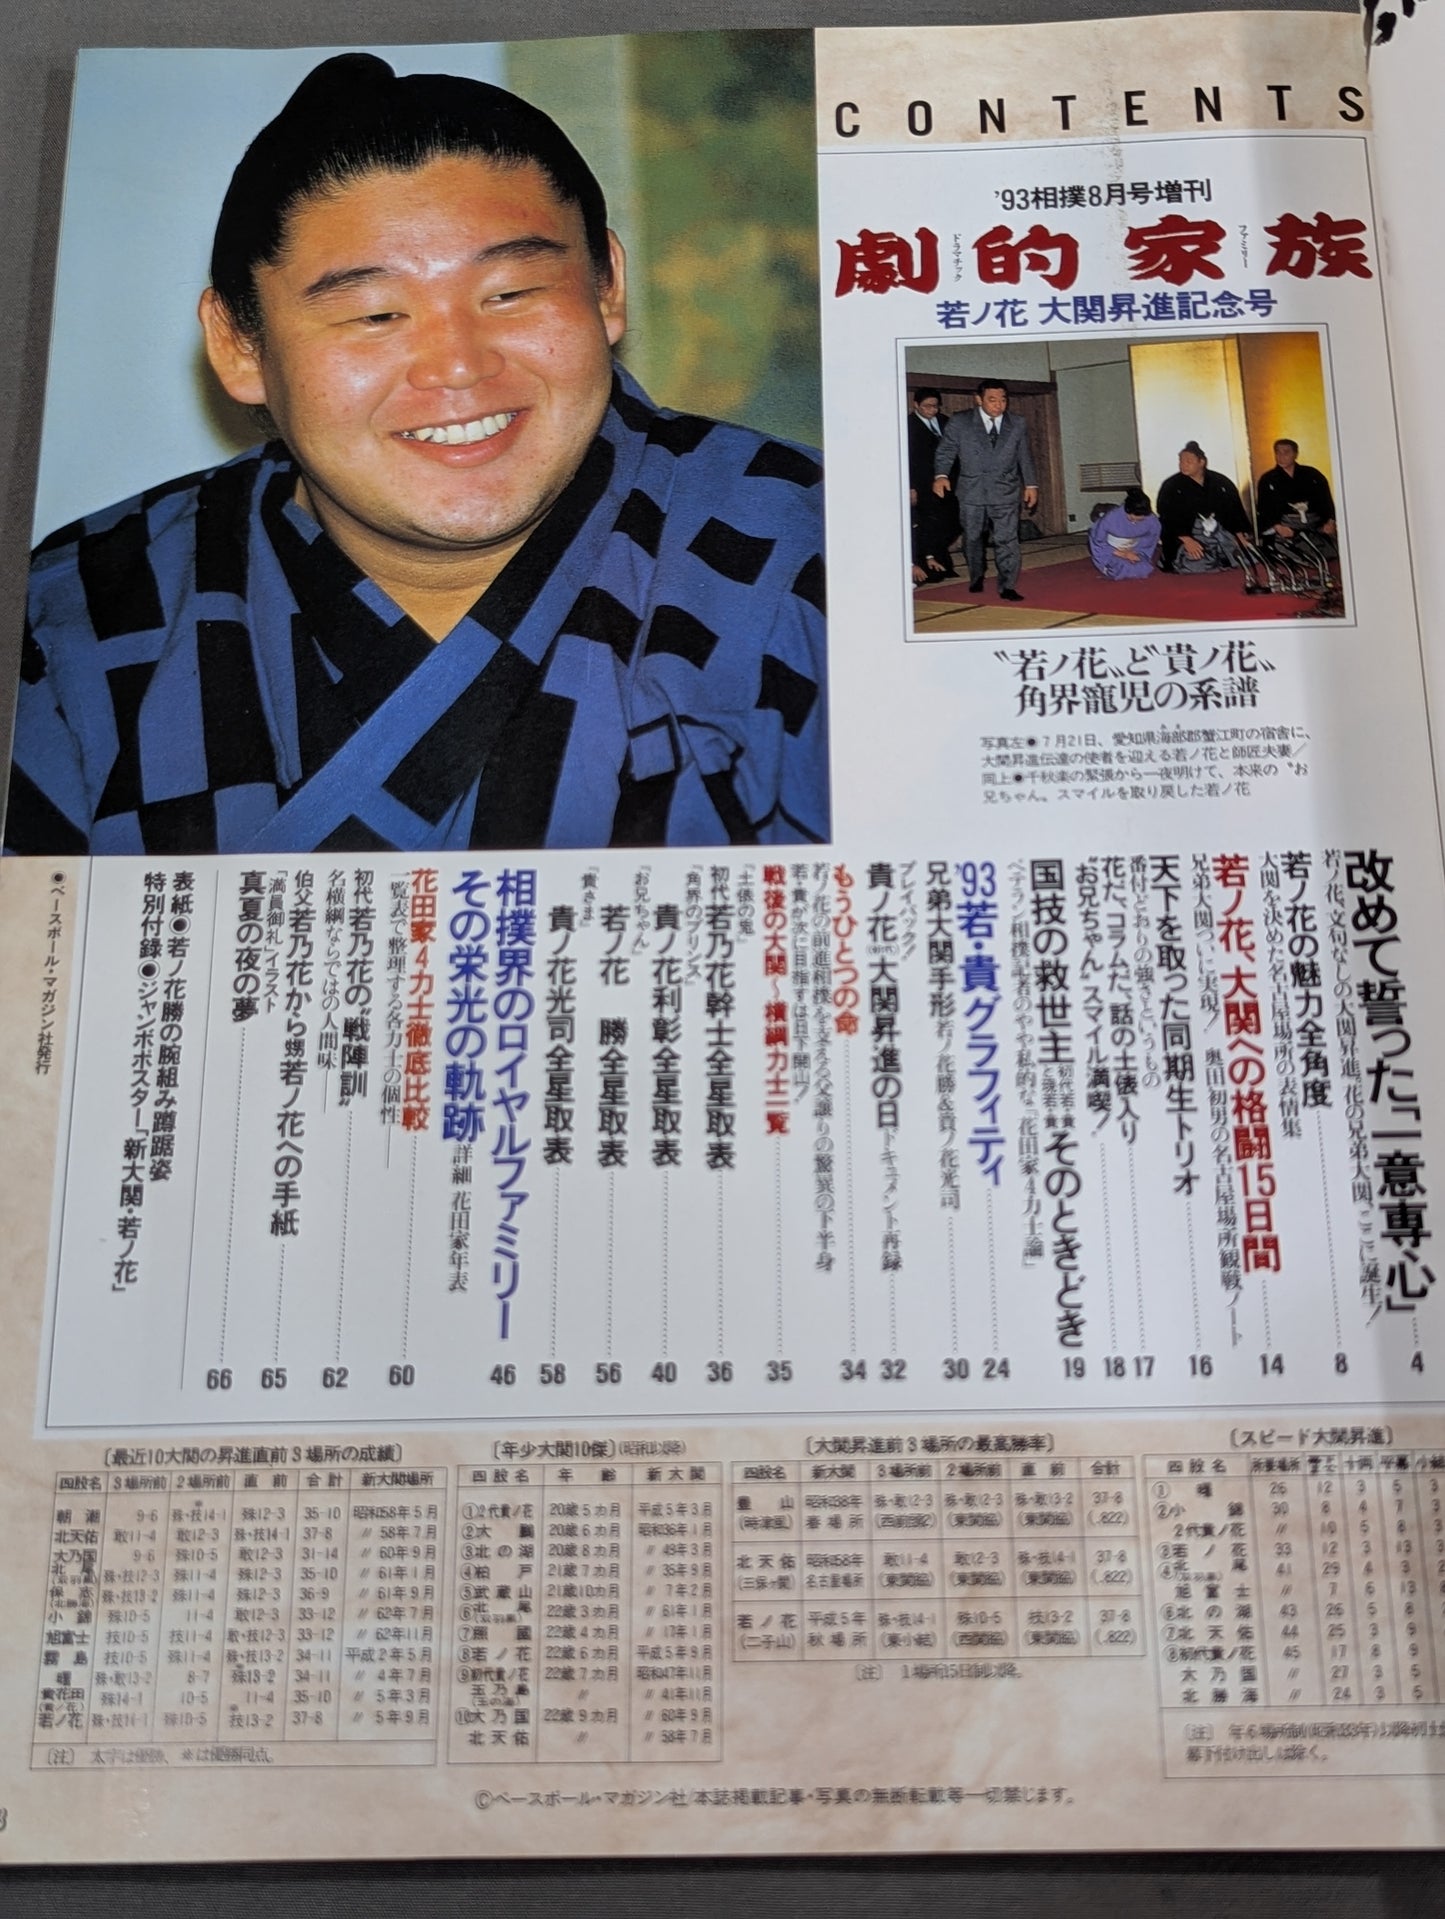 CONTENTS
'93相撲8月号増刊
劇的家族
ドラマチック
ファミリー
若ノ花 大関昇進記念号
“若ノ花”と“貴ノ花”
角界寵児の系譜
写真左●7月21日、愛知県海部郡蟹江町の宿舎に、
大関昇進伝達の使者を迎える若ノ花と師匠夫妻／
同上●千秋楽の緊張から一夜明けて、本来の“お
兄ちゃん”スマイルを取り戻した若ノ花
改めて誓った「一意専心」 4
若ノ花、文句なしの大関昇進。花の兄弟大関、ここに誕生！
若ノ花の魅力全角度 8
大関を決めた名古屋場所の表情集
若ノ花、大関への格闘15日間 14
兄弟大関ついに実現！ 奥田初男の名古屋場所観戦ノート
天下を取った同期生トリオ 16
番付どおりの強さというもの 17
花だ、コラムだ、話の土俵入り 18
“お兄ちゃん”スマイル満喫！
国技の救世主 初代若・貴と現若・貴 そのときどき 19
ベテラン相撲記者のやや私的な「花田家4力士論」
'93若・貴グラフィティ 24
兄弟大関手形 若ノ花勝&貴ノ花光司 30
貴ノ花(初代)大関昇進の日 ドキュメント再録 32
プレイバック！
もうひとつの命 34
若ノ花の前進相撲を支える父譲りの驚異の下半身
若・貴が次に目指すは日下開山！
戦後の大関〜横綱力士一覧 35
「土俵の鬼」
初代若乃花幹士全星取表 36
「角界のプリンス」
貴ノ花利彰全星取表 40
「お兄ちゃん」
若ノ花 勝全星取表 56
「貴さま」
貴ノ花光司全星取表 58
相撲界のロイヤルファミリー
その栄光の軌跡 詳細 花田家年表 46
花田家4力士徹底比較 60
一覧表で整理する各力士の個性
初代若乃花の“戦陣訓” 62
名横綱ならではの人間味
伯父若乃花から甥若ノ花への手紙 65
「満員御礼」イラスト
真夏の夜の夢 66
表紙●若ノ花勝の腕組み蹲踞姿
特別付録●ジャンボポスター「新大関・若ノ花」
●ベースボール・マガジン社発行
〔最近10大関の昇進直前3場所の成績〕
四股名 3場所前 2場所前 直前 合計 新大関場所
朝潮 9-6 殊・技14-1 殊12-3 35-10 昭和58年5月
北天佑 敢11-4 敢12-3 殊・技14-1 37-8 〃58年7月
大乃国 9-6 殊10-5 敢12-3 31-14 〃60年9月
北尾 殊・技12-3 殊11-4 殊12-3 35-10 〃61年1月
保志 殊・技13-2 殊11-4 殊12-3 36-9 〃61年9月
小錦 殊10-5 11-4 敢12-3 33-12 〃62年7月
旭富士 技10-5 技11-4 敢・技12-3 33-12 〃62年11月
霧島 技10-5 殊11-4 殊・技13-2 34-11 平成2年5月
曙 殊・敢13-2 8-7 殊13-2 34-11 〃4年7月
貴花田 殊14-1 10-5 11-4 35-10 〃5年3月
若ノ花 殊・技14-1 殊10-5 技13-2 37-8 〃5年9月
〔注〕 太字は優勝、※は優勝同点。
〔年少大関10傑〕(昭和以降)
四股名 年齢 新大関
①2代貴ノ花 20歳5カ月 平成5年3月
②大鵬 20歳6カ月 昭和36年1月
③北の湖 20歳8カ月 〃49年3月
④柏戸 21歳7カ月 〃35年9月
⑤武蔵山 21歳10カ月 〃7年2月
⑥北尾 22歳3カ月 〃61年1月
⑦照國 22歳4カ月 〃17年1月
⑧若ノ花 22歳6カ月 平成5年9月
⑨初代貴ノ花 22歳7カ月 昭和47年11月
玉乃島 〃 〃41年11月
⑩大乃国 22歳9カ月 〃60年9月
北天佑 〃 〃58年7月
〔大関昇進前3場所の最高勝率〕
四股名 新大関 3場所前 2場所前 直前 合計
豊山 昭和38年 殊・敢12-3 殊・敢12-3 殊・敢13-2 37-8
(時津風) 春場所 (西前頭2) (東関脇) (東関脇) (.822)
北天佑 昭和58年 敢11-4 敢12-3 殊・技14-1 37-8
(三保ヶ関) 名古屋場所 (東関脇) (東関脇) (東関脇) (.822)
若ノ花 平成5年 殊・技14-1 殊10-5 技13-2 37-8
(二子山) 秋場所 (東小結) (西関脇) (東関脇) (.822)
〔注〕 1場所15日制以降。
〔スピード大関昇進〕
四股名 所要場所
①曙 26 12 3 5 3
②小錦 30 8 4 7 3
2代貴ノ花 〃 10 5 8 3
③若ノ花 33 12 3 13
④北尾 41 29 4 3
旭富士 〃 7 6 13
⑥北の湖 43 26 5 8
⑦北天佑 44 25 3 9
⑧初代貴ノ花 45 17 8 9
大乃国 〃 27 3 5
北勝海 〃 24 3 5
Ⓒベースボール・マガジン社/本誌掲載記事・写真の無断転載等一切禁じます。